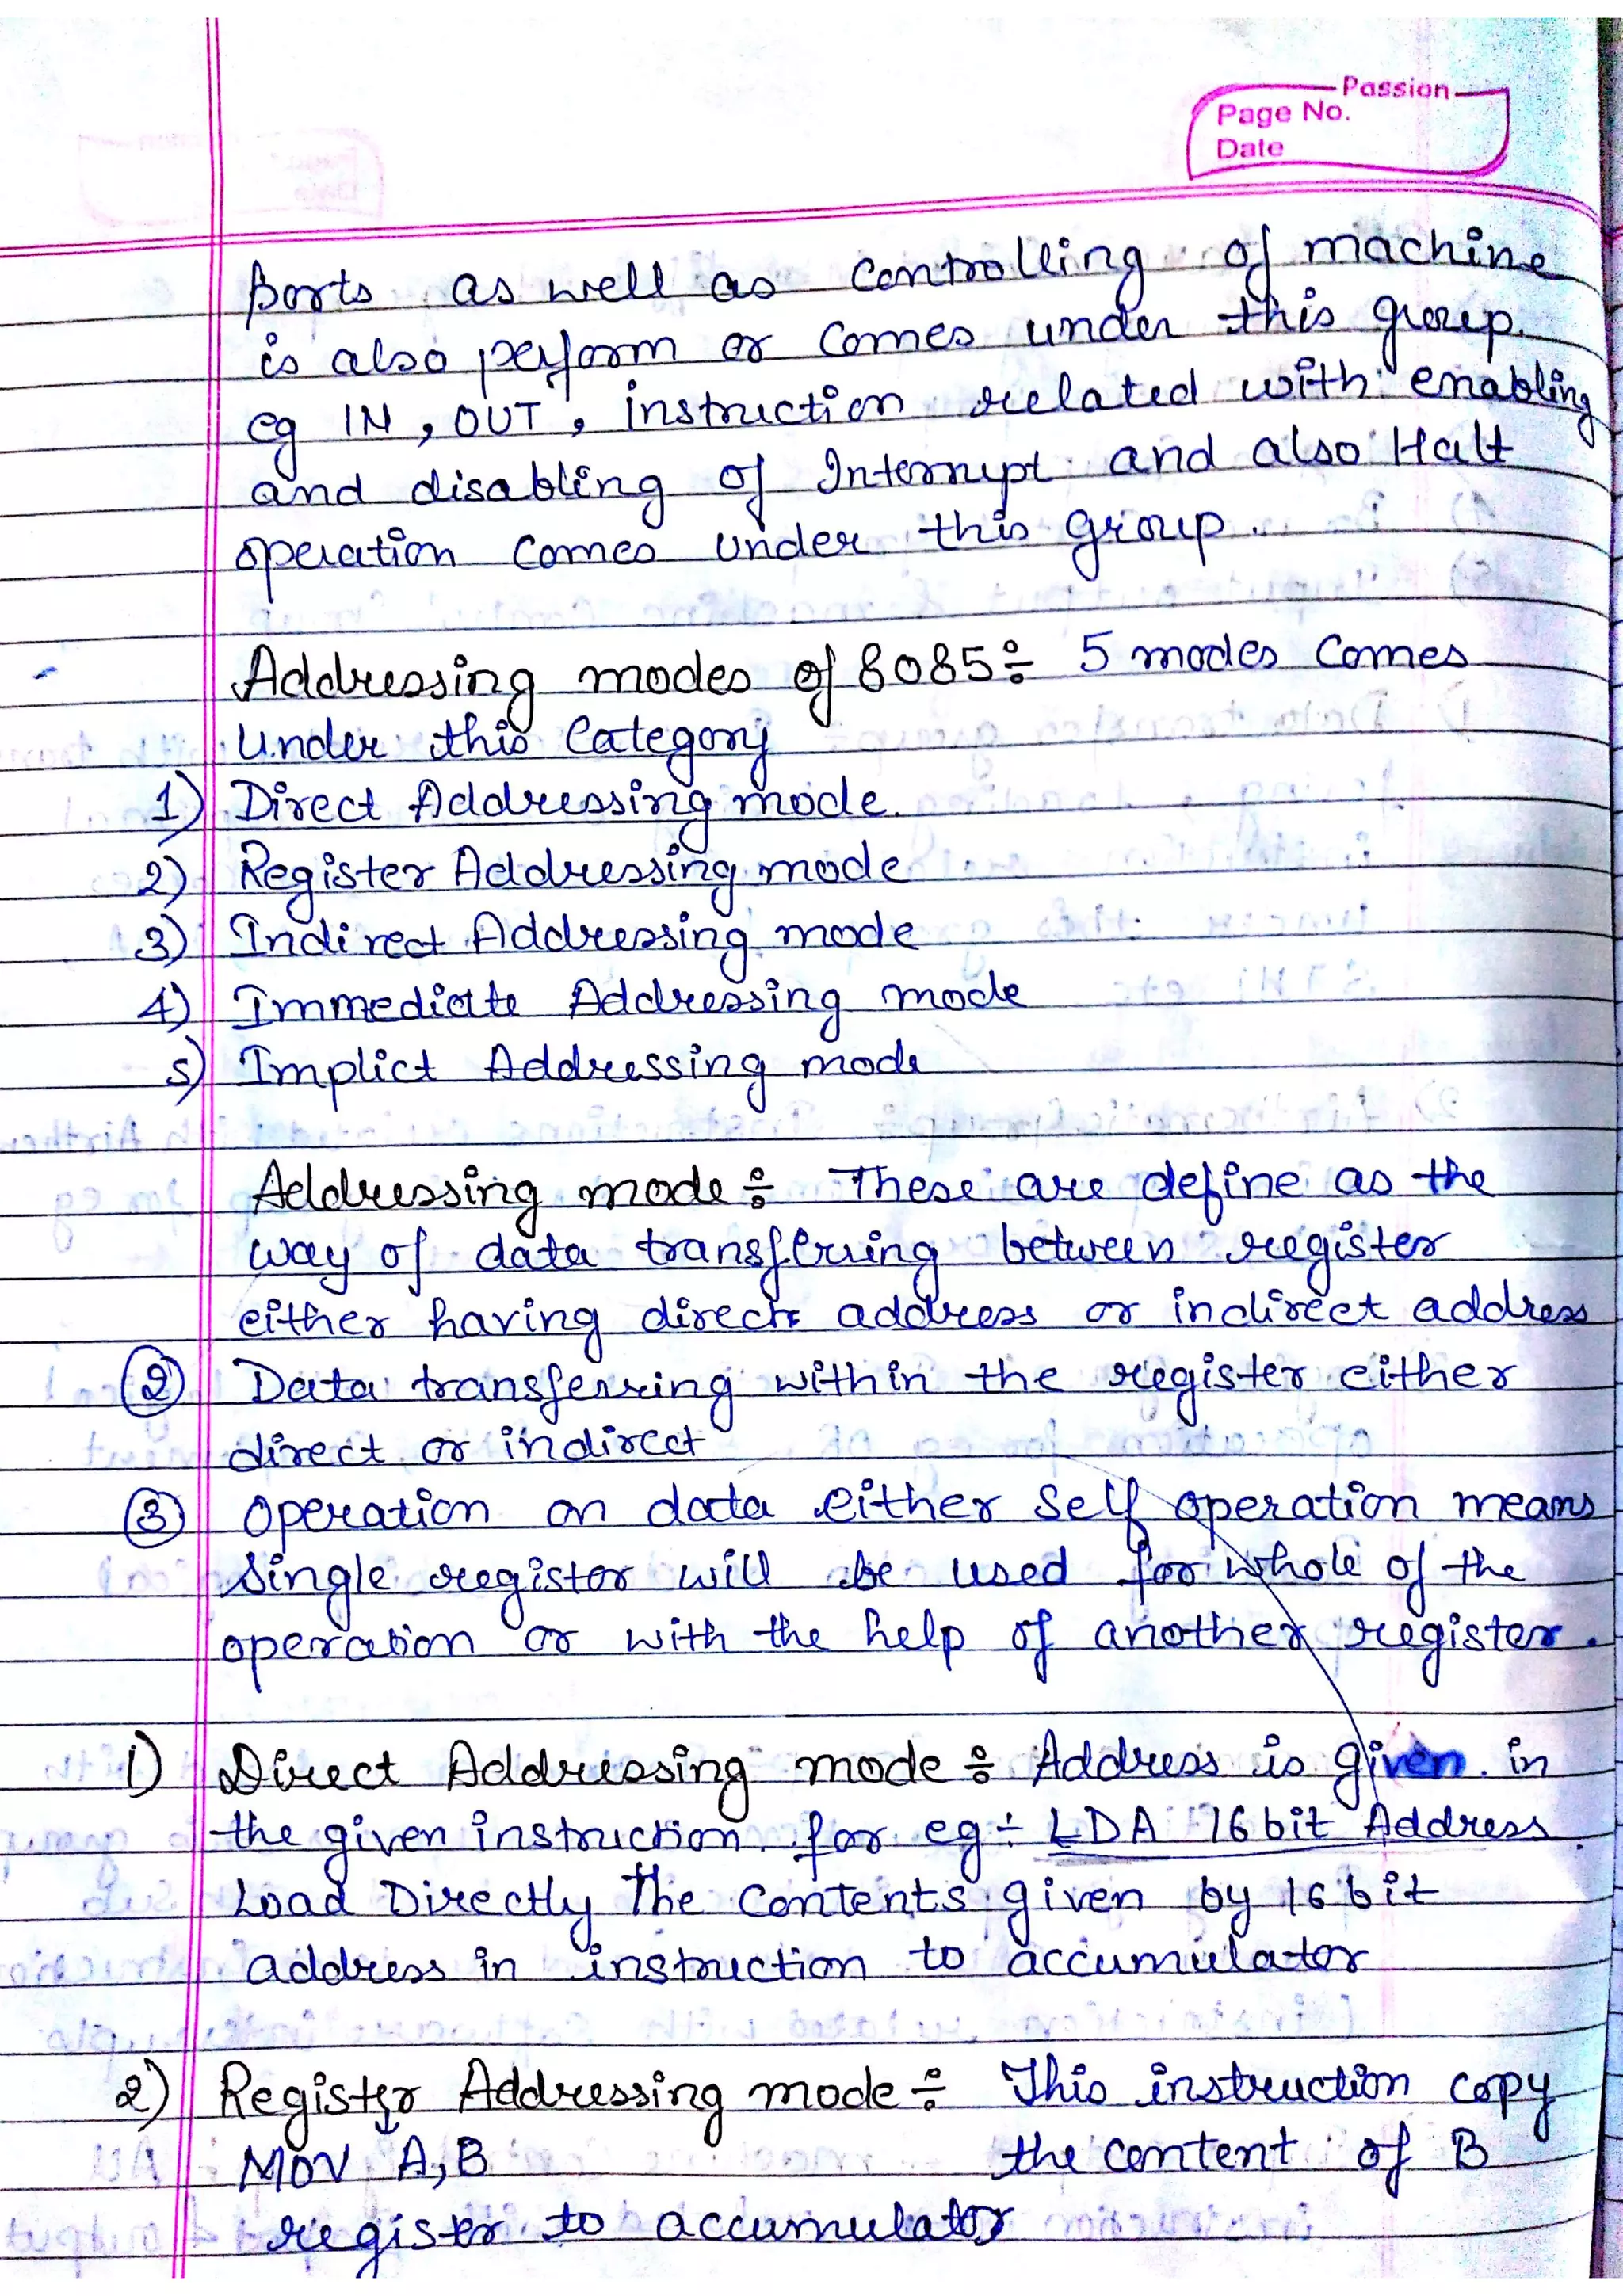 Passion
Page No.
Date
ports as well as controlling of machine
is also perform or comes under this group.
eg IN, OUT, instruction related with enabling
and disabling of Interrupt and also Halt
operation comes under this group.
Addressing modes of 8085÷ 5 modes comes
under this Category
1) Direct Addressing mode.
2) Register Addressing mode
3) Indirect Addressing mode
4) Immediate Addressing mode
5) Implict Addressing mode
Addressing mode ÷ These are define as the
way of data transferring between register
either having direct address or indirect address
② Data transferring within the register either
direct or indirect
③ Operation on data either Self operation means
single register will be used for whole of the
operation or with the help of another register.
1) Direct Addressing mode ÷ Address is given in
the given instruction for eg ÷ LDA 16 bit Address
Load Directly The contents given by 16 bit
address in instruction to accumulator
2) Register Addressing mode ÷ This instruction copy
MOV A,B the content of B
register to accumulator